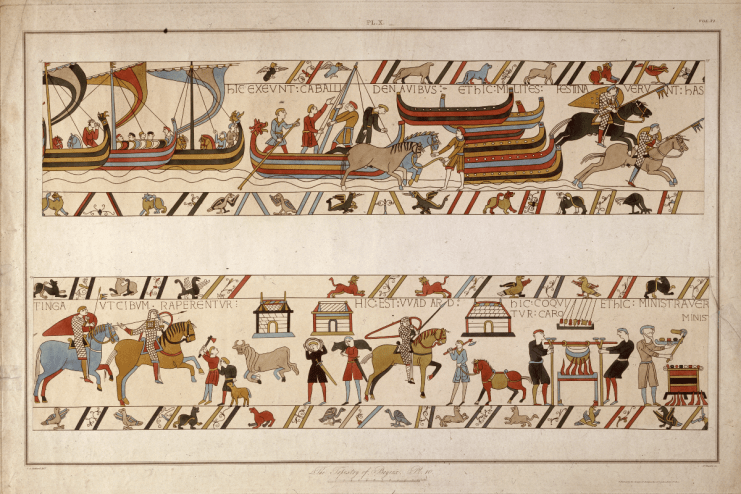 PL. X.
HIC EXEVNT: CABALLI DENAVIBUS:- ETHIC: MILITES: FESTINA VERVNT: hAS
TINGA VT CIBVM· RAPERENTVR:
HIC· EST: VVAD ARD:
hIC· COQVI ETHIC· MINISTRAVER
TVR: CARO MINIS
The Tapestry of Bayeux.